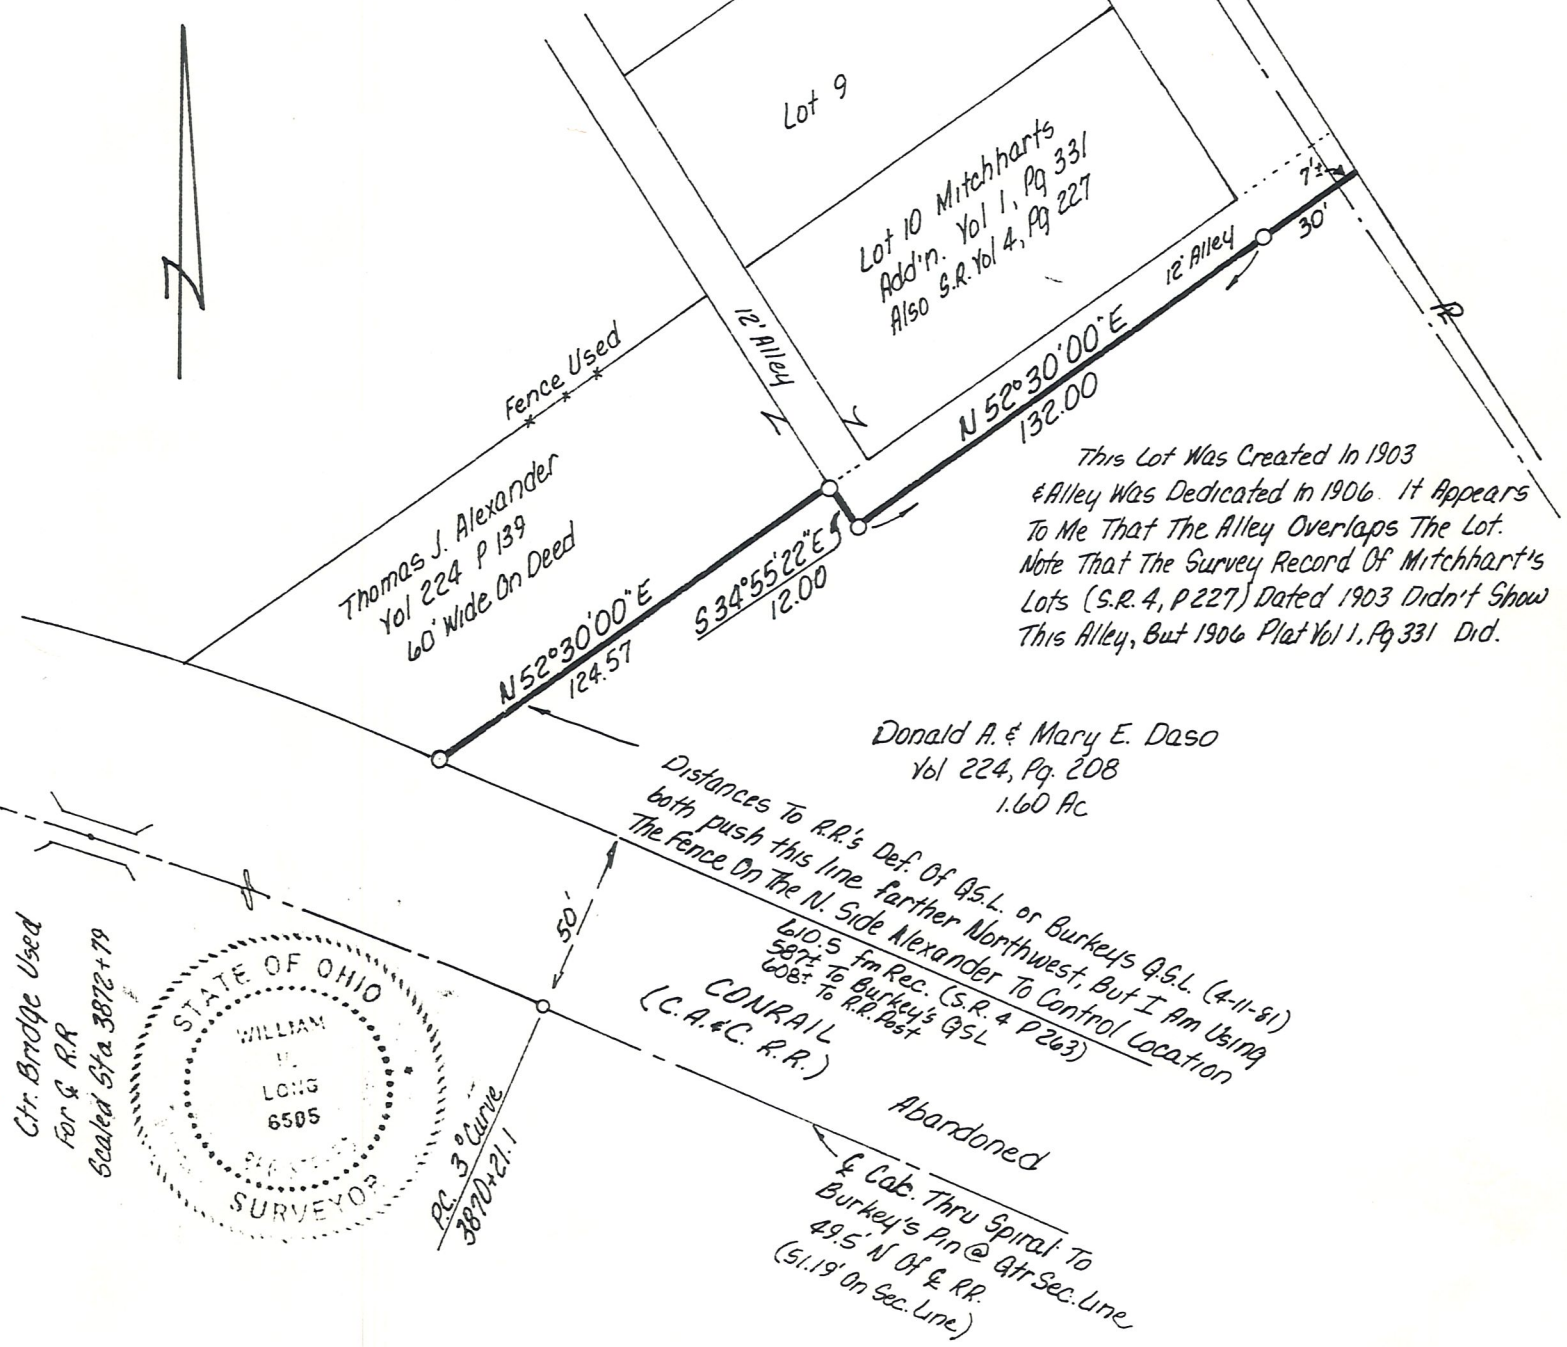 N
Lot 9
Lot 10 Mitchharts
Add'n. Vol 1, Pg 331
Also S.R. Vol 4, Pg 227
7'±
30'
12' Alley
12' Alley
N 52°30'00" E
132.00
Fence Used
Thomas J. Alexander
Vol 224 P 139
60' Wide On Deed
N 52°30'00" E
124.57
S 34°55'22" E
12.00
This Lot Was Created In 1903
& Alley Was Dedicated In 1906. It Appears
To Me That The Alley Overlaps The Lot.
Note That The Survey Record Of Mitchhart's
Lots (S.R. 4, P 227) Dated 1903 Didn't Show
This Alley, But 1906 Plat Vol 1, Pg 331 Did.
Donald A. & Mary E. Daso
Vol 224, Pg. 208
1.60 Ac
Distances To R.R.'s Def. Of Q.S.L. or Burkeys Q.S.L. (4-11-81)
both push this line farther Northwest, But I Am Using
The Fence On The N. Side Alexander To Control Location
610.5 fm Rec. (S.R. 4 P 263)
587± To Burkey's QSL
608± To R.R. Post
50'
CONRAIL
(C.A.&C. R.R.)
Abandoned
℄ Calc. Thru Spiral To
Burkey's Pin @ Qtr Sec. Line
49.5' N Of ℄ RR.
(51.19' On Sec. Line)
P.C. 3° Curve
3870+21.1
Ctr. Bridge Used
For ℄ R.R
Scaled Sta 3872+79
STATE OF OHIO
WILLIAM
LONG
6585
SURVEYOR